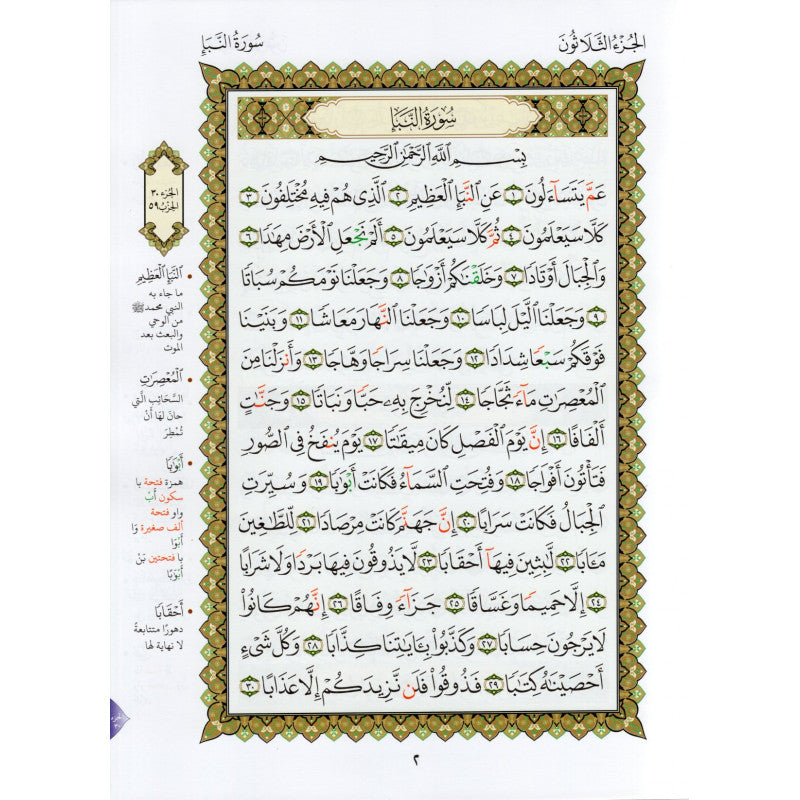 الجُزْءُ الثَّلَاثُونَ
سُورَةُ النَّبَإِ
سُورَةُ النَّبَإِ
بِسْمِ ٱللَّهِ ٱلرَّحْمَٰنِ ٱلرَّحِيمِ
عَمَّ يَتَسَآءَلُونَ ١ عَنِ ٱلنَّبَإِ ٱلْعَظِيمِ ٢ ٱلَّذِى هُمْ فِيهِ مُخْتَلِفُونَ ٣
كَلَّا سَيَعْلَمُونَ ٤ ثُمَّ كَلَّا سَيَعْلَمُونَ ٥ أَلَمْ نَجْعَلِ ٱلْأَرْضَ مِهَٰدًا ٦
وَٱلْجِبَالَ أَوْتَادًا ٧ وَخَلَقْنَٰكُمْ أَزْوَٰجًا ٨ وَجَعَلْنَا نَوْمَكُمْ سُبَاتًا
٩ وَجَعَلْنَا ٱلَّيْلَ لِبَاسًا ١٠ وَجَعَلْنَا ٱلنَّهَارَ مَعَاشًا ١١ وَبَنَيْنَا
فَوْقَكُمْ سَبْعًا شِدَادًا ١٢ وَجَعَلْنَا سِرَاجًا وَهَّاجًا ١٣ وَأَنزَلْنَا مِنَ
ٱلْمُعْصِرَٰتِ مَآءً ثَجَّاجًا ١٤ لِّنُخْرِجَ بِهِۦ حَبًّا وَنَبَاتًا ١٥ وَجَنَّٰتٍ
أَلْفَافًا ١٦ إِنَّ يَوْمَ ٱلْفَصْلِ كَانَ مِيقَٰتًا ١٧ يَوْمَ يُنفَخُ فِى ٱلصُّورِ
فَتَأْتُونَ أَفْوَاجًا ١٨ وَفُتِحَتِ ٱلسَّمَآءُ فَكَانَتْ أَبْوَٰبًا ١٩ وَسُيِّرَتِ
ٱلْجِبَالُ فَكَانَتْ سَرَابًا ٢٠ إِنَّ جَهَنَّمَ كَانَتْ مِرْصَادًا ٢١ لِّلطَّٰغِينَ
مَـَٔابًا ٢٢ لَّٰبِثِينَ فِيهَآ أَحْقَابًا ٢٣ لَّا يَذُوقُونَ فِيهَا بَرْدًا وَلَا شَرَابًا
٢٤ إِلَّا حَمِيمًا وَغَسَّاقًا ٢٥ جَزَآءً وِفَاقًا ٢٦ إِنَّهُمْ كَانُوا۟
لَا يَرْجُونَ حِسَابًا ٢٧ وَكَذَّبُوا۟ بِـَٔايَٰتِنَا كِذَّابًا ٢٨ وَكُلَّ شَىْءٍ
أَحْصَيْنَٰهُ كِتَٰبًا ٢٩ فَذُوقُوا۟ فَلَن نَّزِيدَكُمْ إِلَّا عَذَابًا ٣٠
الجزء ٣٠
الحزب ٥٩
• ٱلنَّبَإِ ٱلْعَظِيمِ
ما جاء به
النبي محمد ﷺ
من الوحي
والبعث بعد
الموت
• ٱلْمُعْصِرَٰتِ
السَّحَائِبِ الَّتِي
حَانَ لَهَا أَنْ
تُمْطِرَ
• أَبْوَٰبًا
همزة فتحة با
سكون أَبْ
واو فتحة
ألف صغيرة وَا
أَبْوَا
با فتحتين بَنْ
أَبْوَٰبًا
• أَحْقَابًا
دهورًا متتابعةً
لا نهاية لها
الجزء
٣٠
٢